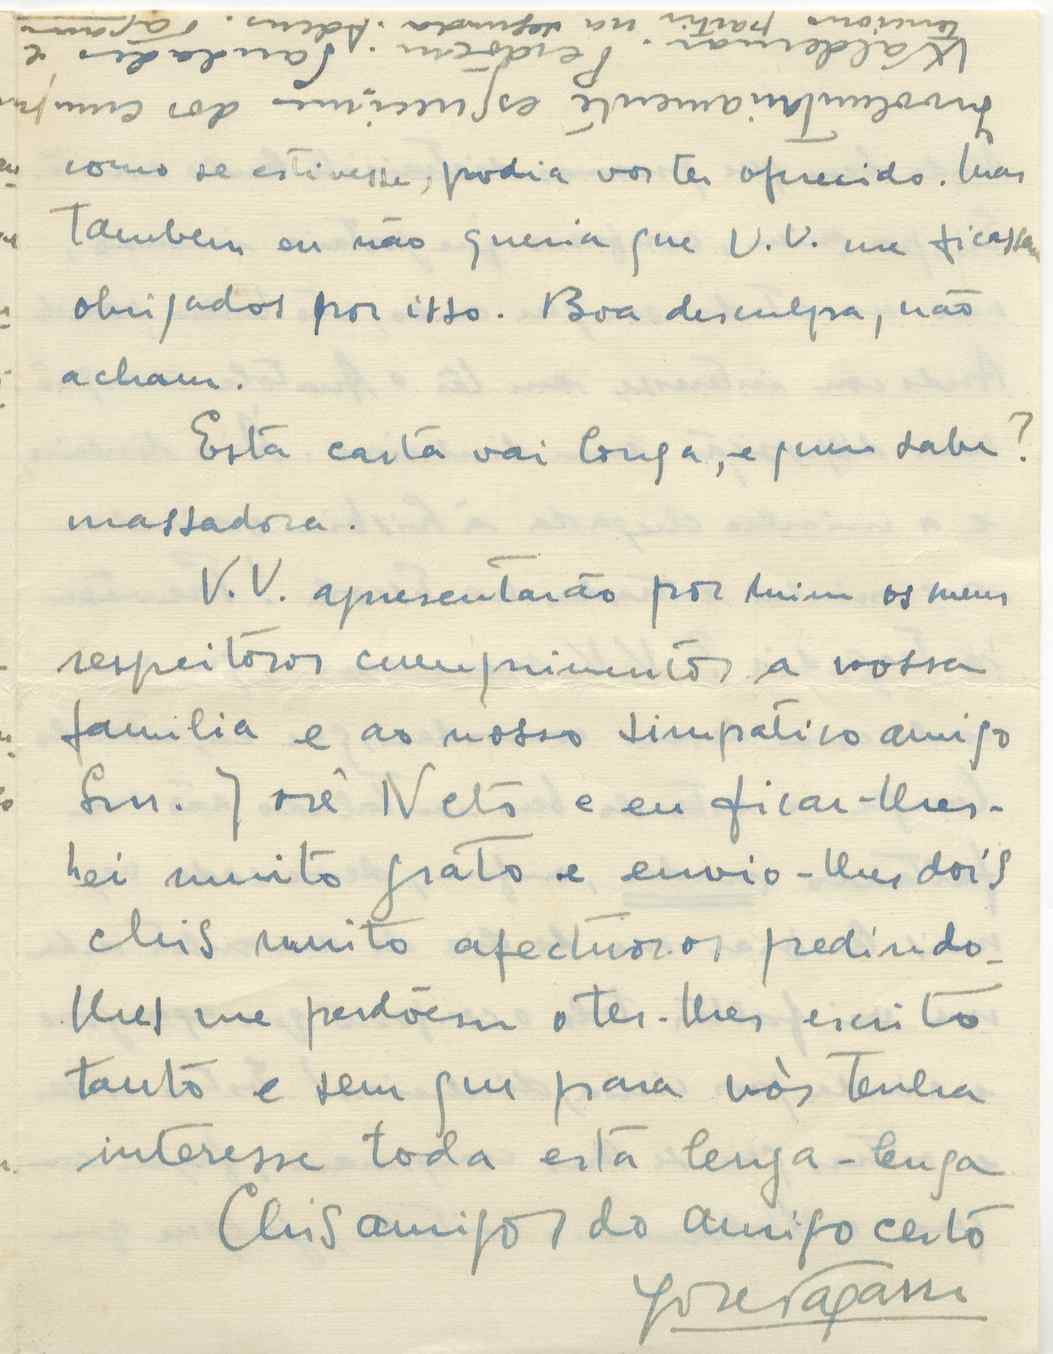 como se estivesse, podia vos ter oferecido. Mas
tambem eu não queria que V.V. me ficassem
obrigados por isso. Boa desculpa, não
acham.
Esta carta vai longa, e quem sabe?
massadora.
V.V. apresentarão por mim os meus
respeitosos cumprimentos a vossa
familia e ao nosso simpatico amigo
Snr. José Neto e eu ficar-lhes-
hei muito grato e envio-lhes dois
chis muito afectuosos pedindo-
lhes me perdôem o ter-lhes escrito
tanto e sem que para vós tenha
interesse toda esta lenga-lenga
Chis amigos do amigo certo
José Tagarro
Involuntariamente esqueci-me dos cumpri
Waldemar. Perdôem. Saudades e
tenciono partir na segunda. Adeus. Tagarro